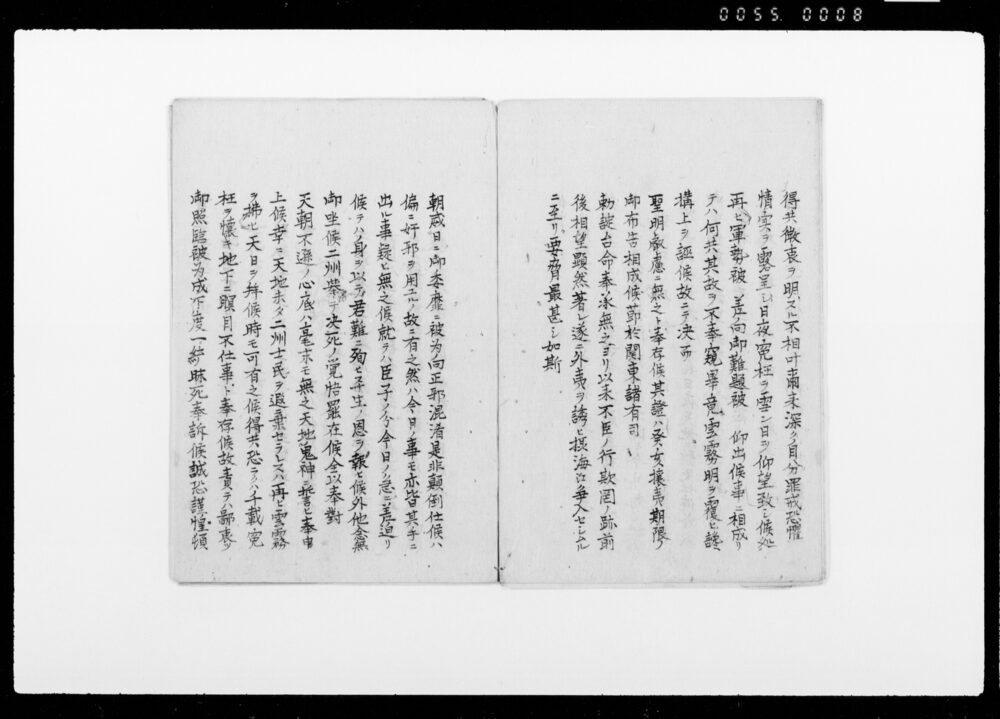 0055 0008
得共微衷ヲ明スル不相叶爾来深ク自分罪戒恐懼
情実ヲ露呈シ日夜冤枉ヲ雪ン日ヲ仰望致シ候処
再ヒ軍勢被 差向御難題被 仰出候事ニ相成リ
テハ何共其故ヲ不奉窺畢竟雲霧明ヲ覆ヒ讒
構上ヲ誣候故ニテ決而
聖明叡慮ニ無之ト奉存候其證ハ癸亥攘夷期限ノ
御布告相成候節於関東諸有司
勅諚台命奉承無之ヨリ以来不臣ノ行欺罔ノ跡前
後相望顕然著シ遂ニ外夷ヲ誘ヒ摂海江争入セシムル
ニ至リ要脅最甚シ如斯
朝威日ニ御委靡ニ被為向正邪混淆是非顛倒仕候ハ
偏ニ奸邪ヲ用ユルノ故ニ有之然ハ今日ノ事モ亦皆其手ニ
出ル事疑ヒ無之候就テハ臣子ノ分今日ノ急ニ差迫リ
候テハ身ヲ以テ君難ニ殉ヒ平生ノ恩ヲ報ヒ候外他念無
御坐候二州挙テ決死ノ覚悟罷在候全以奉對
天朝不遜ノ心底ハ毫末モ無之天地鬼神ニ誓ヒ奉申
上候幸ニ天地未タ二州士民ヲ遐棄セラレスハ再ヒ雲霧
ヲ拂ヒ天日ヲ拜候時モ可有之候得共恐ラクハ千載冤
枉ヲ懐キ地下ニ瞑目不仕事ト奉存候故責テハ鄙衷ノ
御照臨被為成下度一統昧死奉訴候誠恐謹惶頓